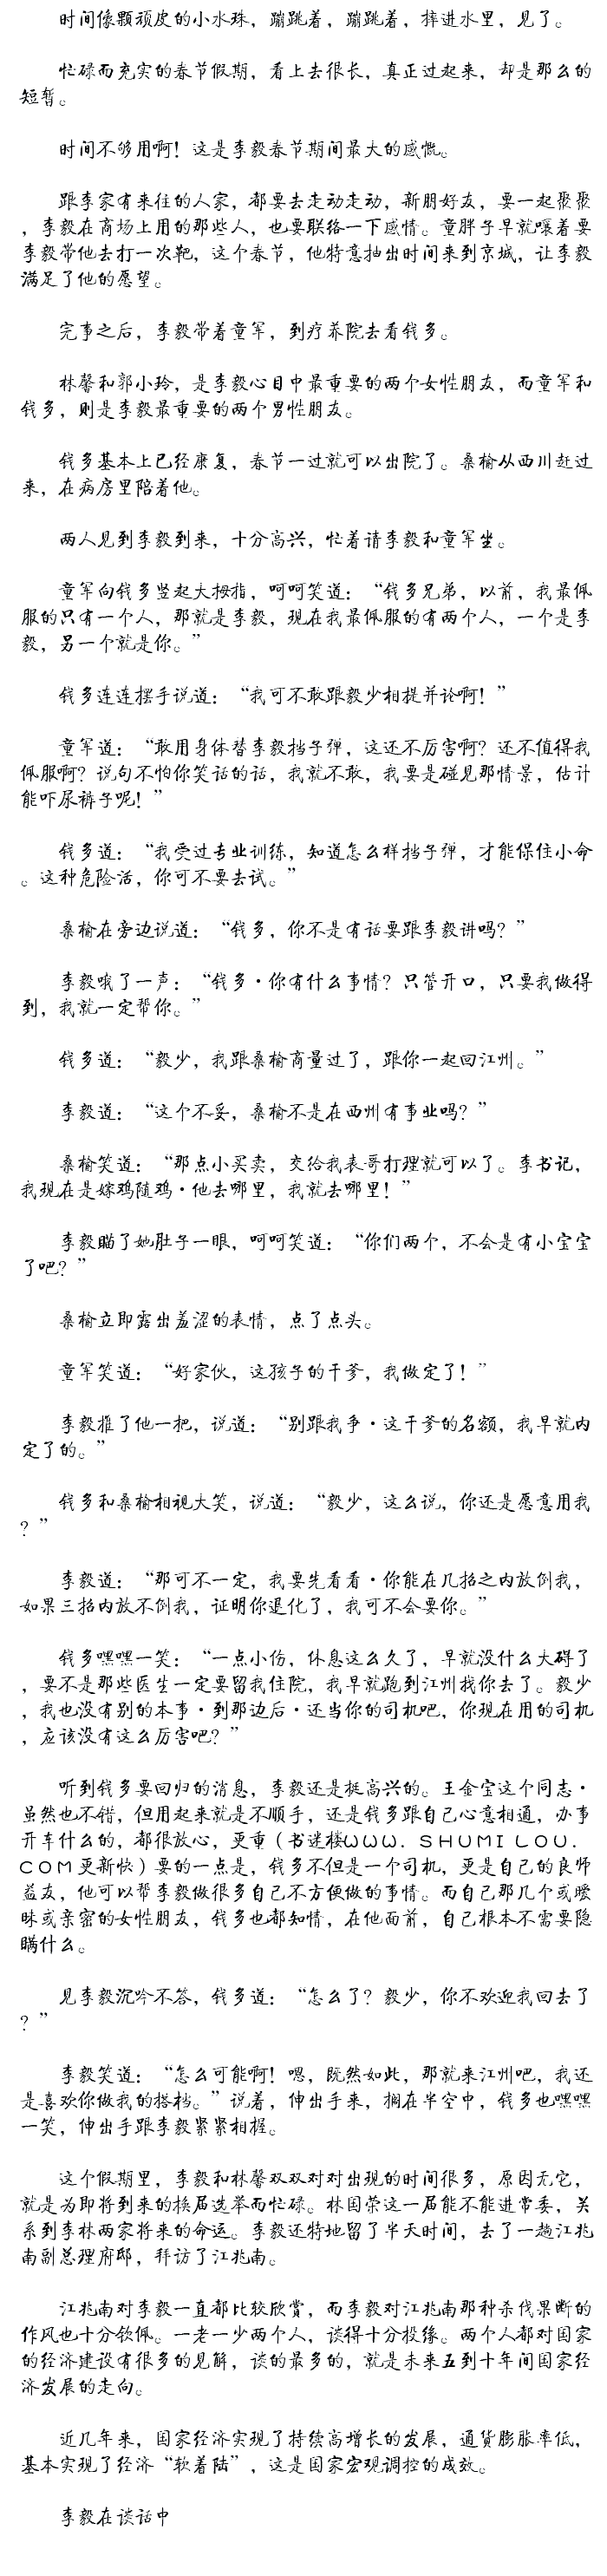 时间像颗顽皮的小水珠，蹦跳着，蹦跳着，摔进水里，见了。
忙碌而充实的春节假期，看上去很长，真正过起来，却是那么的
短暂。
时间不够用啊！这是李毅春节期间最大的感慨。
跟李家有来往的人家，都要去走动走动，新朋好友，要一起聚聚
，李毅在商场上用的那些人，也要联络一下感情。童胖子早就嚷着要
李毅带他去打一次靶，这个春节，他特意抽出时间来到京城，让李毅
满足了他的愿望。
完事之后，李毅带着童军，到疗养院去看钱多。
林馨和郭小玲，是李毅心目中最重要的两个女性朋友，而童军和
钱多，则是李毅最重要的两个男性朋友。
钱多基本上已经康复，春节一过就可以出院了。桑榆从西川赶过
来，在病房里陪着他。
两人见到李毅到来，十分高兴，忙着请李毅和童军坐。
童军向钱多竖起大拇指，呵呵笑道：“钱多兄弟，以前，我最佩
服的只有一个人，那就是李毅，现在我最佩服的有两个人，一个是李
毅，另一个就是你。”
钱多连连摆手说道：“我可不敢跟毅少相提并论啊！”
童军道：“敢用身体替李毅挡子弹，这还不厉害啊？还不值得我
佩服啊？说句不怕你笑话的话，我就不敢，我要是碰见那情景，估计
能吓尿裤子呢！”
钱多道：“我受过专业训练，知道怎么样挡子弹，才能保住小命
。这种危险活，你可不要去试。”
桑榆在旁边说道：“钱多，你不是有话要跟李毅讲吗？”
李毅哦了一声：“钱多·你有什么事情？只管开口，只要我做得
到，我就一定帮你。”
钱多道：“毅少，我跟桑榆商量过了，跟你一起回江州。”
李毅道：“这个不妥，桑榆不是在西州有事业吗？”
桑榆笑道：“那点小买卖，交给我表哥打理就可以了。李书记，
我现在是嫁鸡随鸡·他去哪里，我就去哪里！”
李毅瞄了她肚子一眼，呵呵笑道：“你们两个，不会是有小宝宝
了吧？”
桑榆立即露出羞涩的表情，点了点头。
童军笑道：“好家伙，这孩子的干爹，我做定了！”
李毅推了他一把，说道：“别跟我争·这干爹的名额，我早就内
定了的。”
钱多和桑榆相视大笑，说道：“毅少，这么说，你还是愿意用我
？”
李毅道：“那可不一定，我要先看看·你能在几招之内放倒我，
如果三招内放不倒我，证明你退化了，我可不会要你。”
钱多嘿嘿一笑：“一点小伤，休息这么久了，早就没什么大碍了
，要不是那些医生一定要留我住院，我早就跑到江州找你去了。毅少
，我也没有别的本事·到那边后·还当你的司机吧，你现在用的司机
，应该没有这么厉害吧？”
听到钱多要回归的消息，李毅还是挺高兴的。王金宝这个同志·
虽然也不错，但用起来就是不顺手，还是钱多跟自己心意相通，办事
开车什么的，都很放心，更重（书迷楼WWW．SHUMILOU．
COM更新快）要的一点是，钱多不但是一个司机，更是自己的良师
益友，他可以帮李毅做很多自己不方便做的事情。而自己那几个或暧
昧或亲密的女性朋友，钱多也都知情，在他面前，自己根本不需要隐
瞒什么。
见李毅沉吟不答，钱多道：“怎么了？毅少，你不欢迎我回去了
？”
李毅笑道：“怎么可能啊！嗯，既然如此，那就来江州吧，我还
是喜欢你做我的搭档。”说着，伸出手来，搁在半空中，钱多也嘿嘿
一笑，伸出手跟李毅紧紧相握。
这个假期里，李毅和林馨双双对对出现的时间很多，原因无它，
就是为即将到来的换届选举而忙碌。林国荣这一届能不能进常委，关
系到李林两家将来的命运。李毅还特地留了半天时间，去了一趟江兆
南副总理府邸，拜访了江兆南。
江兆南对李毅一直都比较欣赏，而李毅对江兆南那种杀伐果断的
作风也十分钦佩。一老一少两个人，谈得十分投缘。两个人都对国家
的经济建设有很多的见解，谈的最多的，就是未来五到十年间国家经
济发展的走向。
近几年来，国家经济实现了持续高增长的发展，通货膨胀率低，
基本实现了经济“软着陆”，这是国家宏观调控的成效。
李毅在谈话中